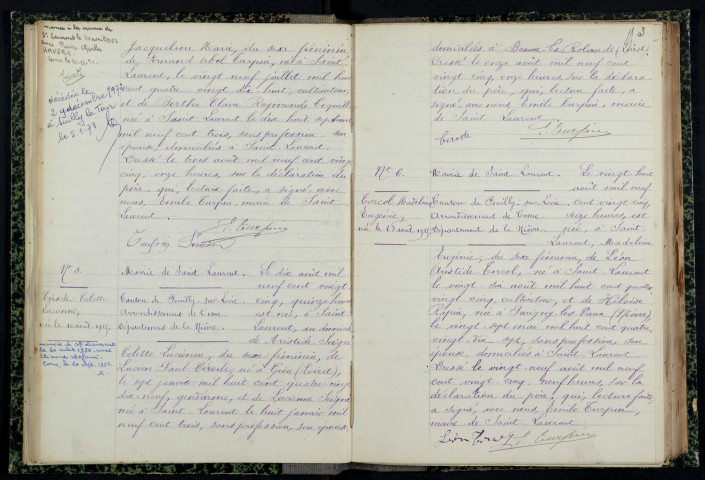 Mariée à la mairie de
St Laurent le
avec Pierre Charles
décédée le
29 décembre 1977
à Suilly la Tour
le 5.1.78
Jacqueline Marie, du sexe féminin,
de Fernand Abel Turpin, né à Saint
Laurent, le vingt neuf juillet mil huit
cent quatre vingt dix huit, cultivateur,
et de Berthe Claire Raymonde
née à Saint Laurent le dix huit septembre
mil neuf cent trois, sans profession, son
épouse, domiciliés à Saint Laurent.
Dressé le trois août mil neuf cent vingt
cinq, onze heures, sur la déclaration du
père, qui, lecture faite, a signé avec
nous, Emile Turpin, maire de Saint
Laurent.
E. Turpin
Turpin
No 5.
Cirode Colette
Lucienne,
née le 10 août 1925.
Mairie de Saint Laurent.
Canton de Pouilly sur Loire
Arrondissement de Cosne
Département de la Nièvre.
Le dix août mil
neuf cent vingt
cinq, quinze heures
est née, à Saint
Laurent, au domicile
de Aristide Seigne
Colette Lucienne, du sexe féminin, de
Lucien Paul Cirode, né à Gien (Loiret),
le sept janvier mil huit cent quatre vingt
dix neuf, gendarme, et de Lucienne Seigne
née à Saint Laurent le huit janvier mil
neuf cent trois, sans profession, son épouse,
domiciliés à Beaune la Rolande (Loiret).
Dressé le onze août mil neuf cent
vingt cinq, onze heures, sur la déclara
tion du père, qui, lecture faite, a
signé avec nous, Emile Turpin, maire
de Saint Laurent.
Cirode
E. Turpin
No 6.
Torcol Madeleine
Eugénie,
Mairie de Saint Laurent.
Canton de Pouilly sur Loire
Arrondissement de Cosne
Département de la Nièvre.
Le vingt huit
août mil neuf
cent vingt cinq,
seize heures, est
née, à Saint
Laurent, Madeleine
Eugénie, du sexe féminin, de Léon
Aristide Torcol, né à Saint Laurent
le vingt six août mil huit cent quatre
vingt cinq, cultivateur, et de Héloïse
née à Savigny les Vaux (Nièvre)
le vingt sept mai mil huit cent quatre
vingt dix sept, sans profession, son
épouse, domiciliés à Saint Laurent
Dressé le vingt neuf août mil neuf
cent vingt cinq, neuf heures, sur la
déclaration du père, qui, lecture faite,
a signé, avec nous, Emile Turpin,
maire de Saint Laurent.
Léon Torcol
E. Turpin